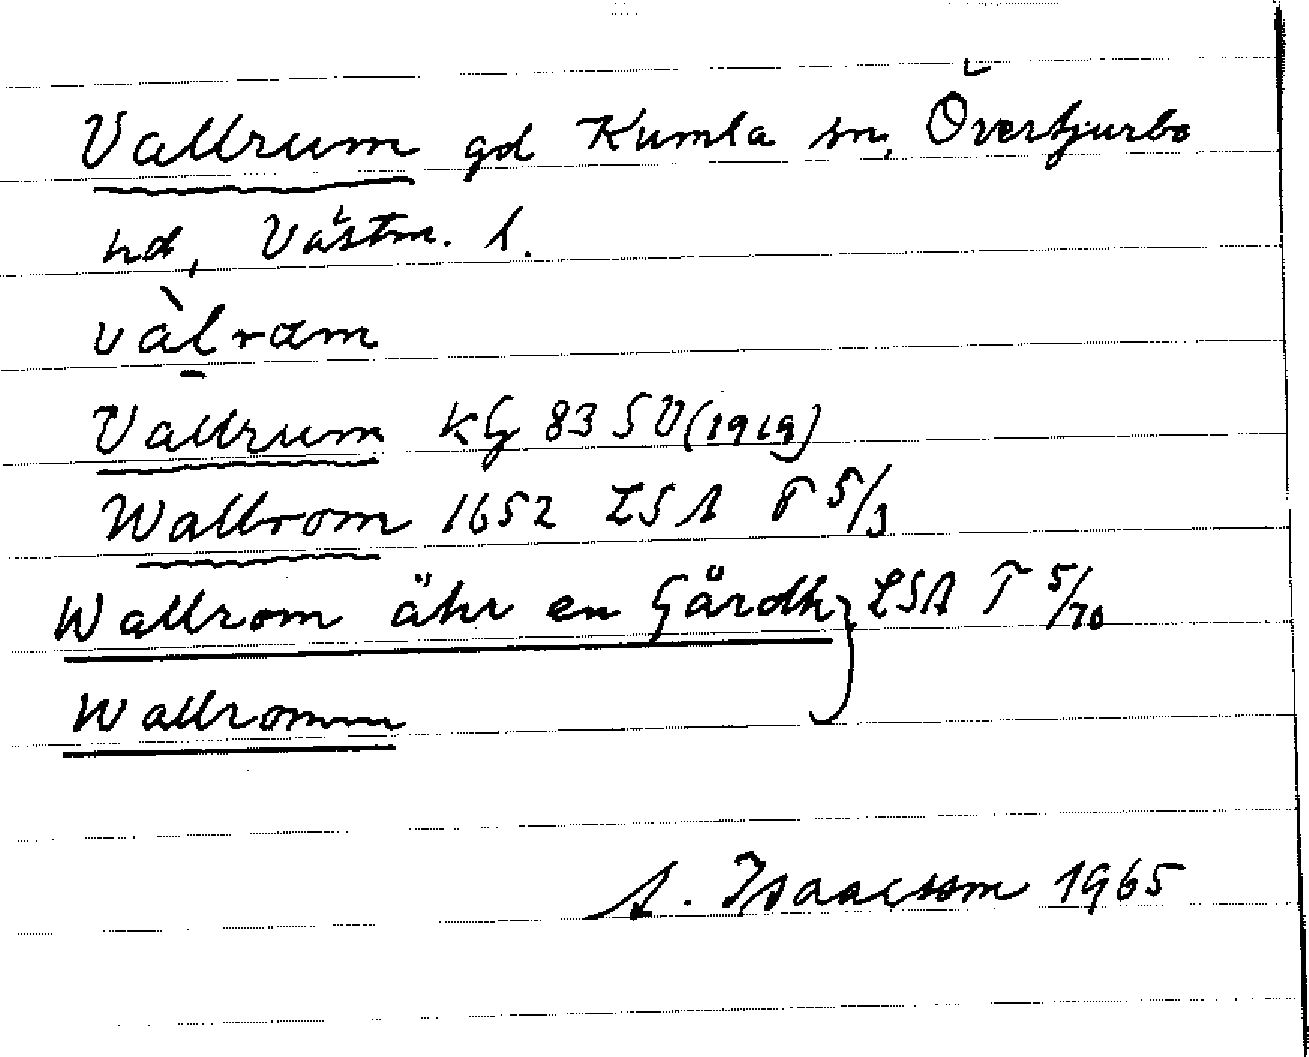 Vallrum gd Kumla sn, Övertjurbo
hd, Västm. l.
vàl̠ram
Vallrum KG 83 SV (1919)
Wallrom 1652 LSA T 5/3
Wallrom ähr en Gårdh } LSA T 5/70
Wallromm
A. Isaacsson 1965